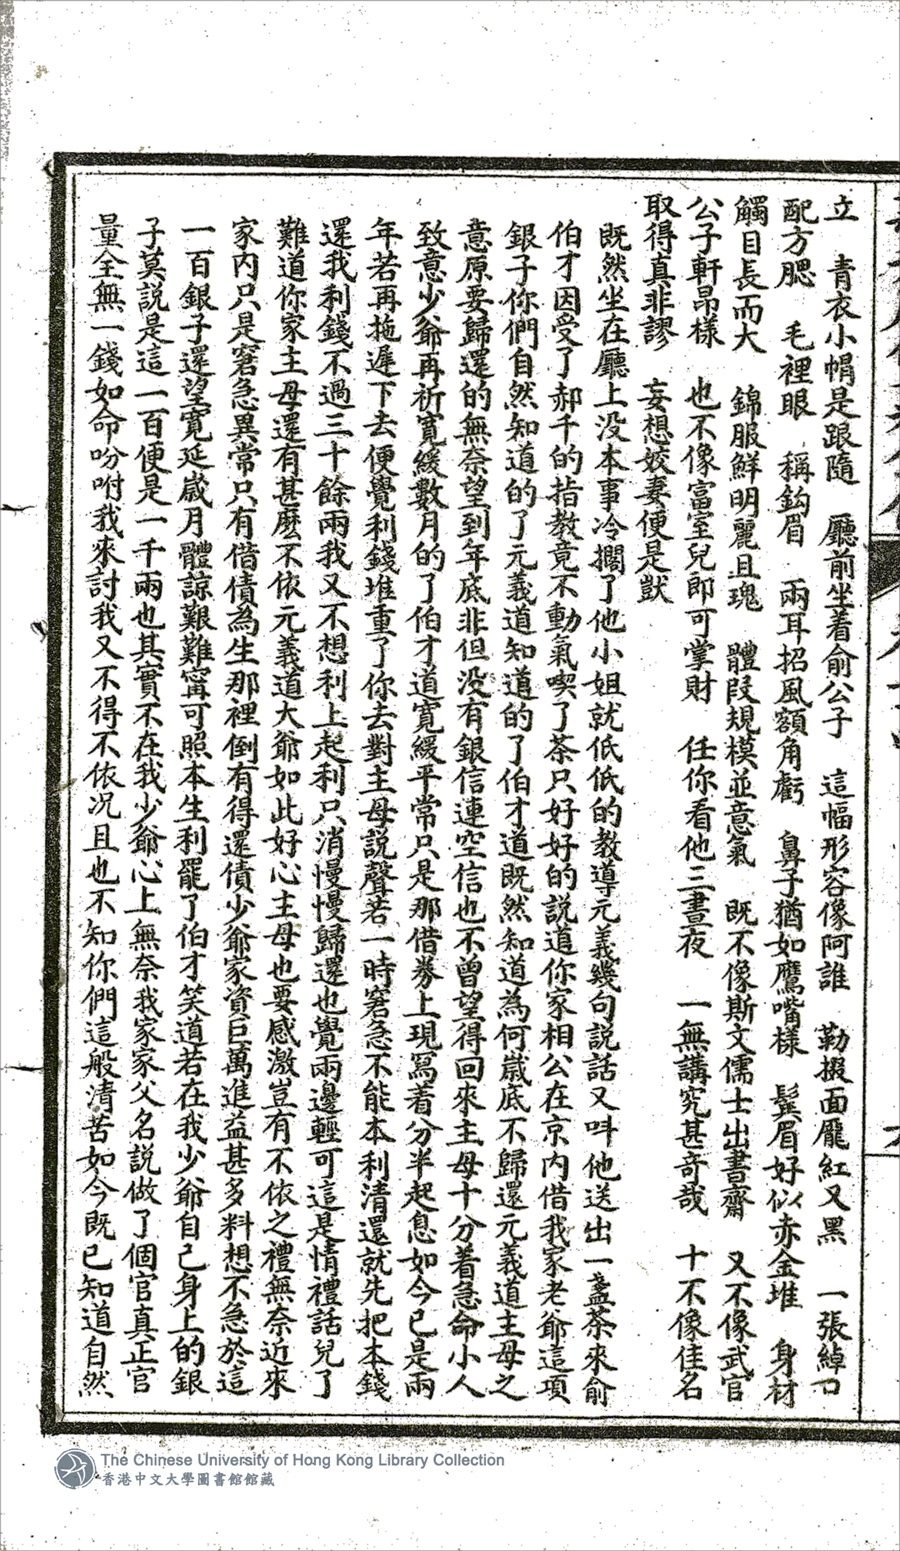 立　青衣小帽是跟隨　廳前坐着俞公子　這幅形容像阿誰　勒掇面龎紅又黑　一張綽口
配方腮　毛裡眼　稱鈎眉　兩耳招風額角虧　鼻子猶如鷹嘴樣　髭眉好似赤金堆　身材
觸目長而大　錦服鮮明麗且瑰　體段規模並意氣　既不像斯文儒士出書齋　又不像武官
公子軒昂樣　也不像富室兒郎可掌財　任你看他三晝夜　一無講究甚奇哉　十不像佳名
取得真非謬　妄想姣妻便是獃
既然坐在廳上没本事冷擱了他小姐就低低的教導元義幾句説話又呌他送出一盞茶來俞
伯才因受了郝千的指教竟不動氣喫了茶只好好的説道你家相公在京内借我家老爺這項
銀子你們自然知道的了元義道知道的了伯才道既然知道為何嵗底不歸還元義道主母之
意原要歸還的無奈望到年底非但没有銀信連空信也不曾望得回來主母十分着急命小人
致意少爺再祈寬緩數月的了伯才道寬緩平常只是那借券上現寫着分半起息如今已是兩
年若再拖遲下去便覺利錢堆重了你去對主母説聲若一時窘急不能本利清還就先把本錢
還我利錢不過三十餘兩我又不想利上起利只消慢慢歸還也覺兩邊輕可這是情禮話兒了
難道你家主母還有甚麽不依元義道大爺如此好心主母也要感激豈有不依之禮無奈近來
家内只是窘急異常只有借債為生那裡倒有得還債少爺家資巨萬進益甚多料想不急於這
一百銀子還望寬延嵗月體諒艱難寗可照本生利罷了伯才笑道若在我少爺自己身上的銀
子莫説是這一百便是一千兩也其實不在我少爺心上無奈我家家父名説做了個官真正官
量全無一錢如命吩咐我來討我又不得不依况且也不知你們這般清苦如今既已知道自然
The Chinese University of Hong Kong Library Collection
香港中文大學圖書館館藏